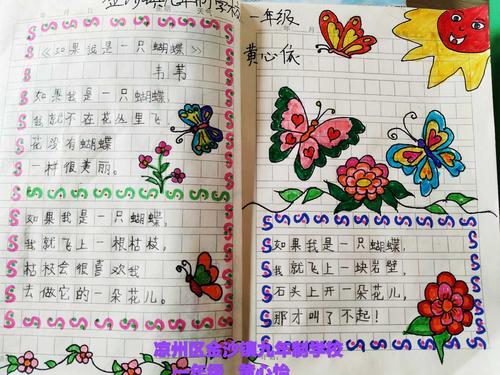 金沙镇九年制学校
一年级
黄心依
《如果我是一只蝴蝶》
韦苇
如果我是一只蝴蝶,
我就不在花丛里飞,
花没有蝴蝶
一样很美丽。
如果我是一只蝴蝶,
我就飞上一根枯枝,
枯枝会很喜欢我
去做它的一朵花儿。
如果我是一只蝴蝶,
我就飞上一块岩壁,
石头上开一朵花儿,
那才叫了不起!
凉州区金沙镇九年制学校
一年级 黄心怡